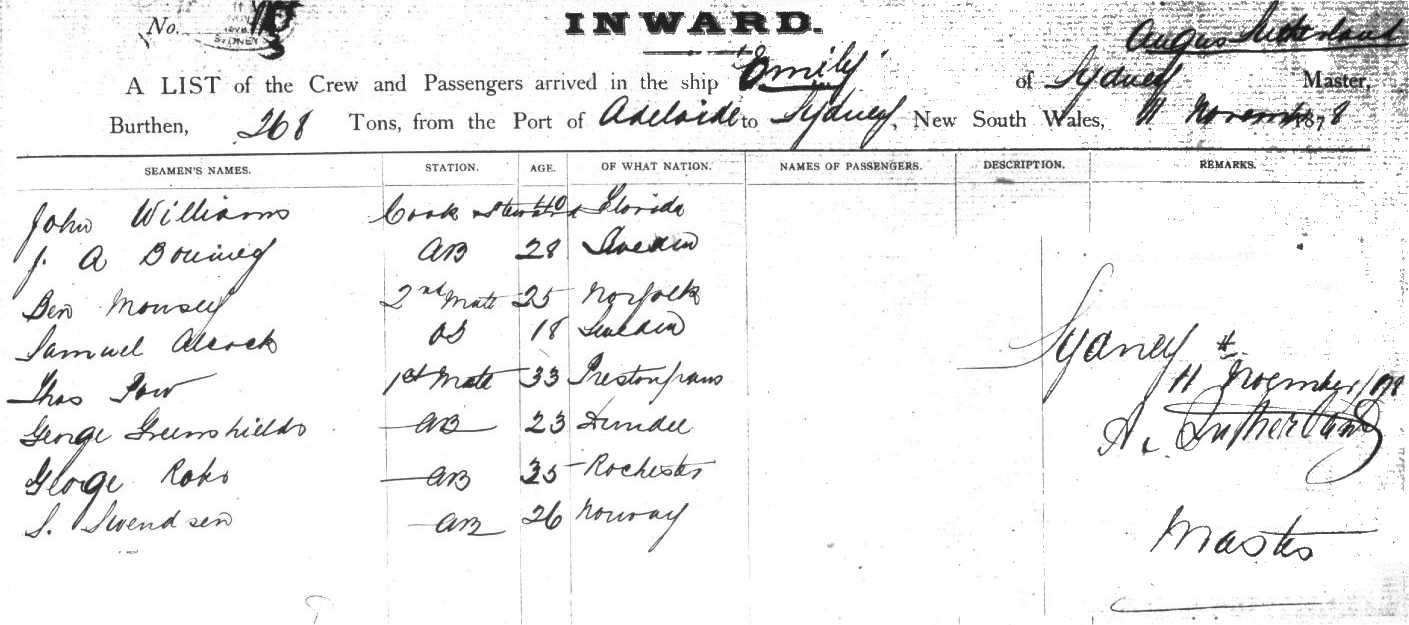 No.
SYDNEY
INWARD.
Angus Sutherland
A LIST of the Crew and Passengers arrived in the ship "Emily" of Sydney Master,
Burthen, 268 Tons, from the Port of Adelaide to Sydney, New South Wales, 11 November 1878
SEAMEN'S NAMES. STATION. AGE. OF WHAT NATION. NAMES OF PASSENGERS. DESCRIPTION. REMARKS.
John Williams Cook & Steward 40 Florida
J. A 28 Sweden
AB
Ben Mousey 2nd Mate 25 Norfolk
Samuel Alcock OS 18 Sweden
Thos Pow 1st Mate 33 Prestonpans
George Greenshields AB 23 Dundee
George Robs AB 35 Rochester
S. Swendsen AB 26 Norway
Sydney
11 Noember 1878
A. Sutherland
Master